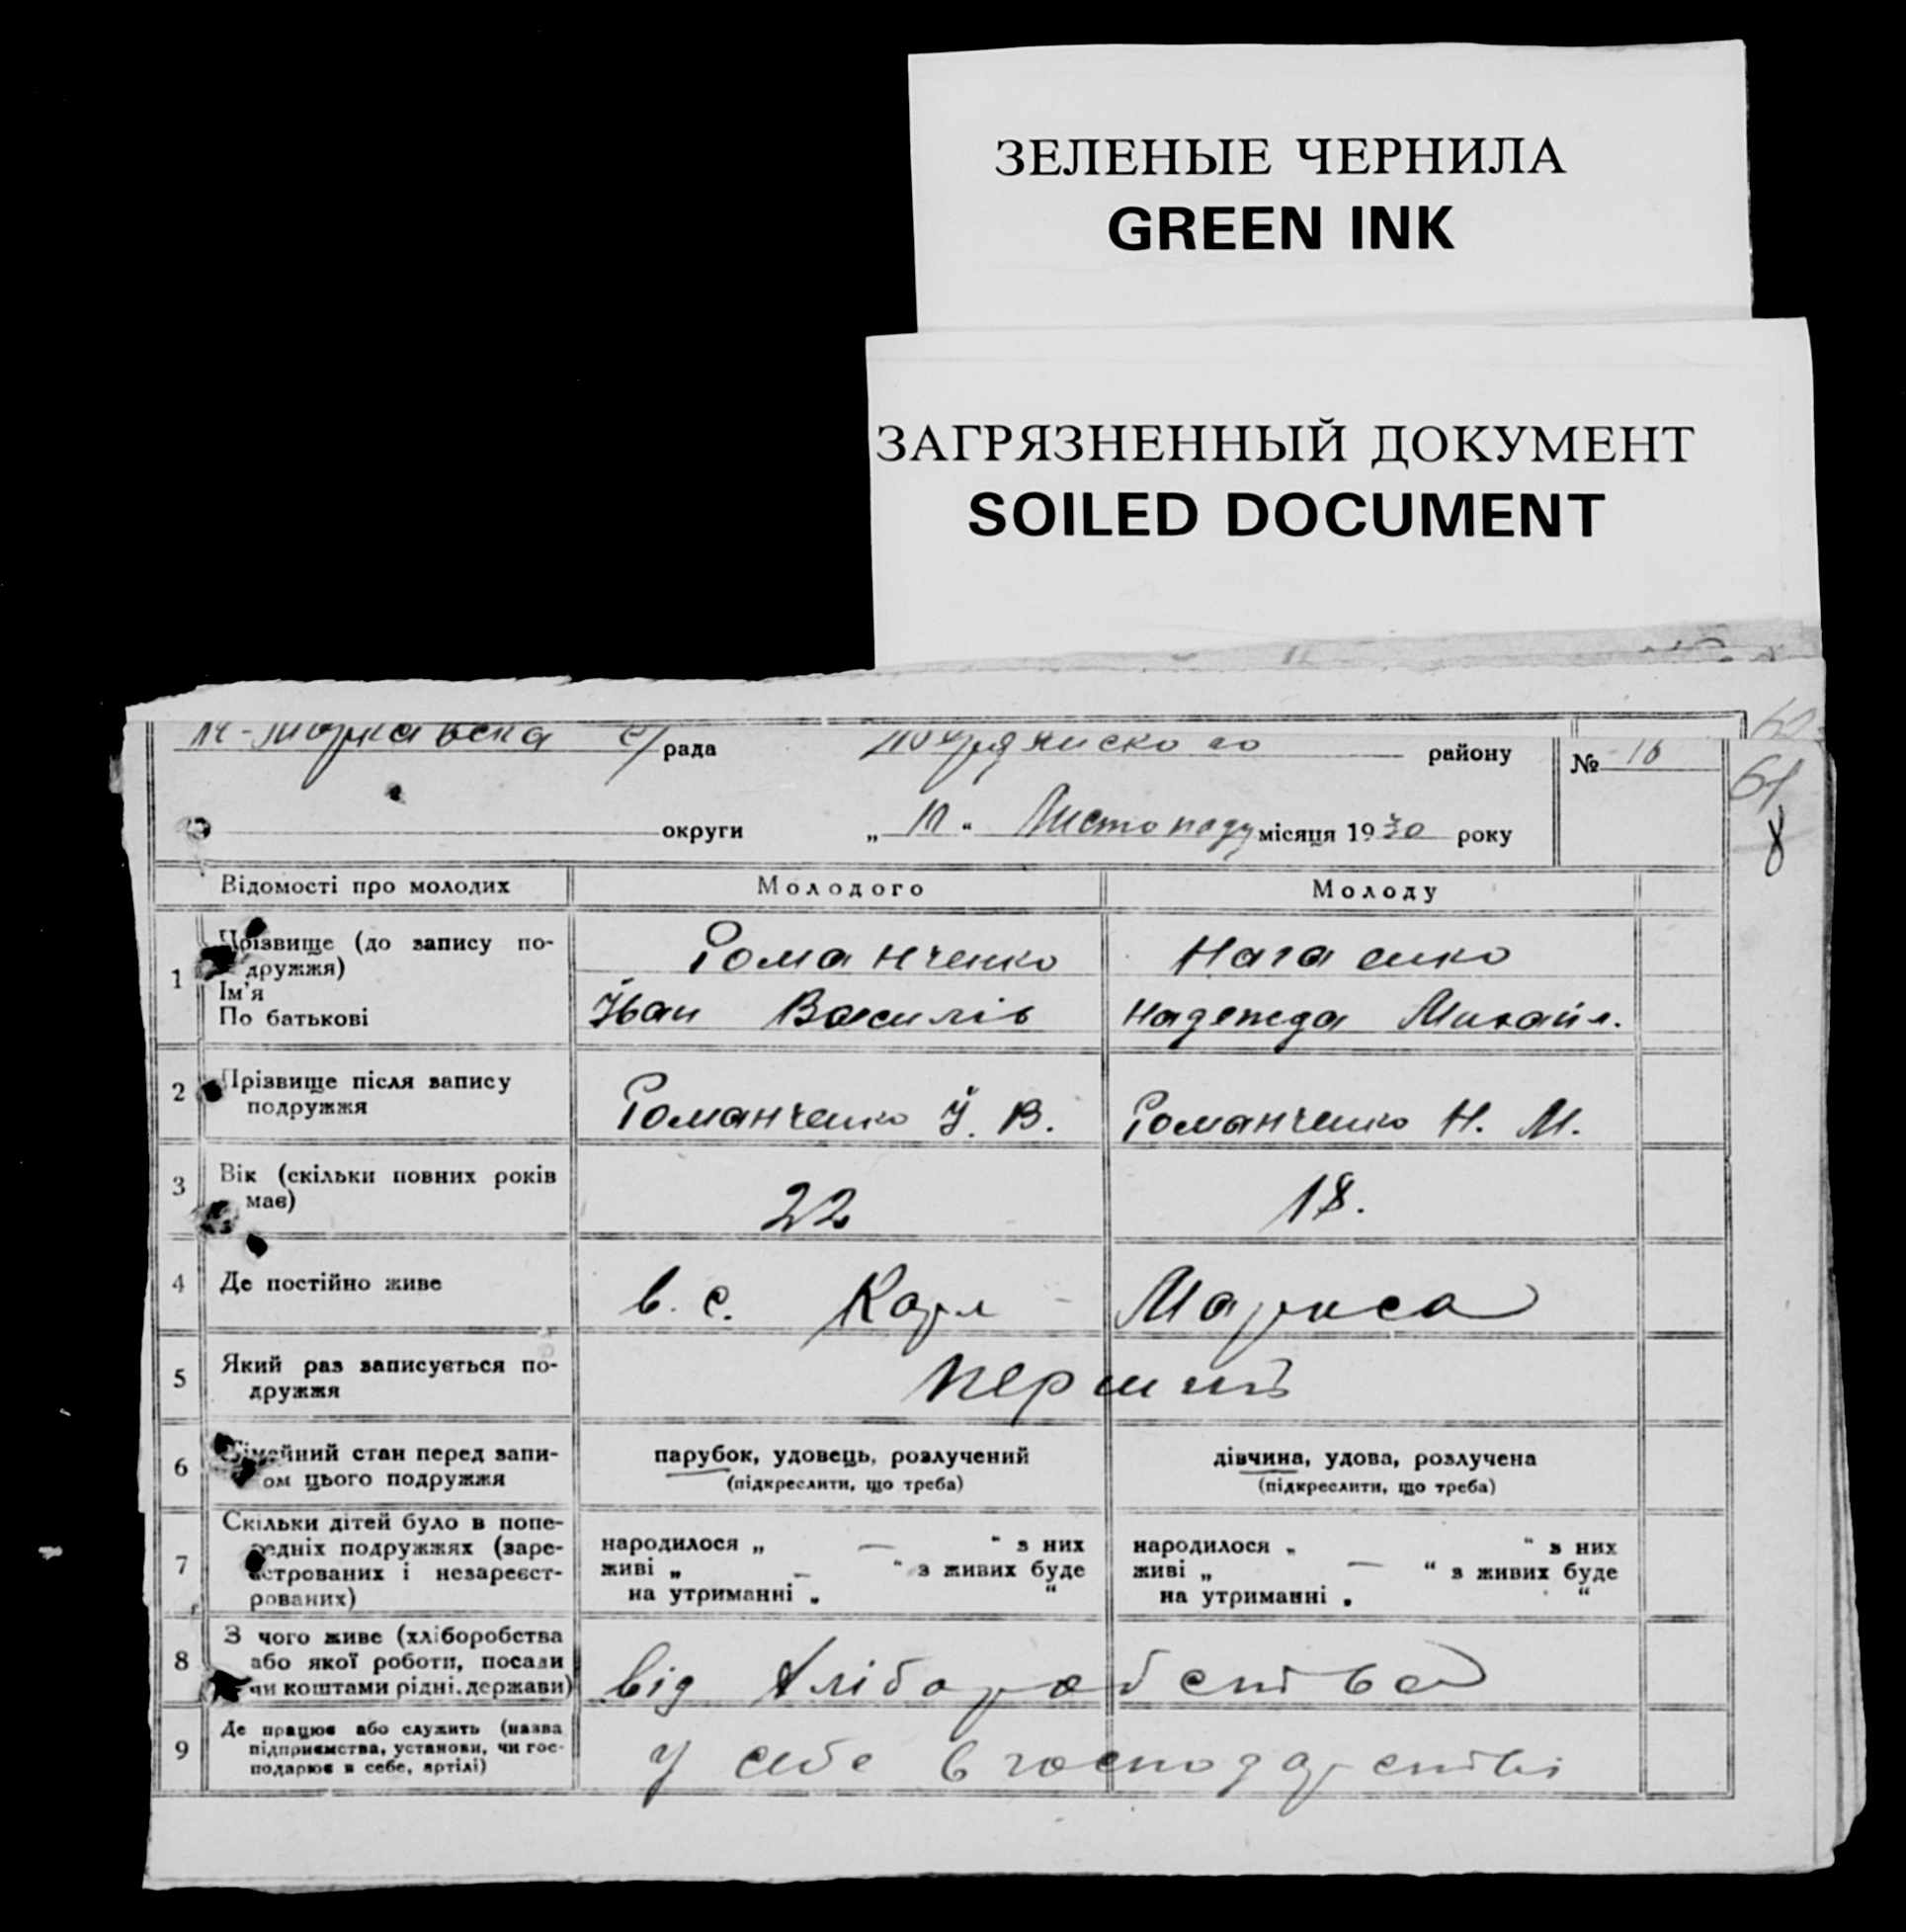 ЗЕЛЕНЫЕ ЧЕРНИЛА
GREEN INK
ЗАГРЯЗНЕННЫЙ ДОКУМЕНТ
SOILED DOCUMENT
с/рада району № 16
61
округи „ 10 “ Листопаду місяця 1930 року
8
Відомості про молодих Молодого Молоду
1 Прізвище (до запису по-
дружжя) Романченко
Ім'я
По батькові Іван Василів Надежда Михайл.
2 Прізвище після запису
подружжя Романченко І. В. Романченко Н. М.
3 Вік (скільки повних років
має) 22 18.
4 Де постійно живе в. с. Карл - Маркса
5 Який раз записується по-
дружжя перший
6 Сімейний стан перед запи-
ом цього подружжя парубок, удовець, розлучений дівчина, удова, розлучена
(підкреслити, що треба) (підкреслити, що треба)
7 Скільки дітей було в попе-
редніх подружжях (заре-
єстрованих і незареєст-
рованих) народилося „ — “ з них народилося „ “ з них
живі „ — “ з живих буде живі „ — “ з живих буде
на утриманні „ “ на утриманні „ “
8 З чого живе (хліборобства
або якої роботи, посади
чи коштами рідні, держави) від хліборобства
9 Де працює або служить (назва
підприємства, установи, чи гос-
подарює в себе, артілі) у себе в господарстві